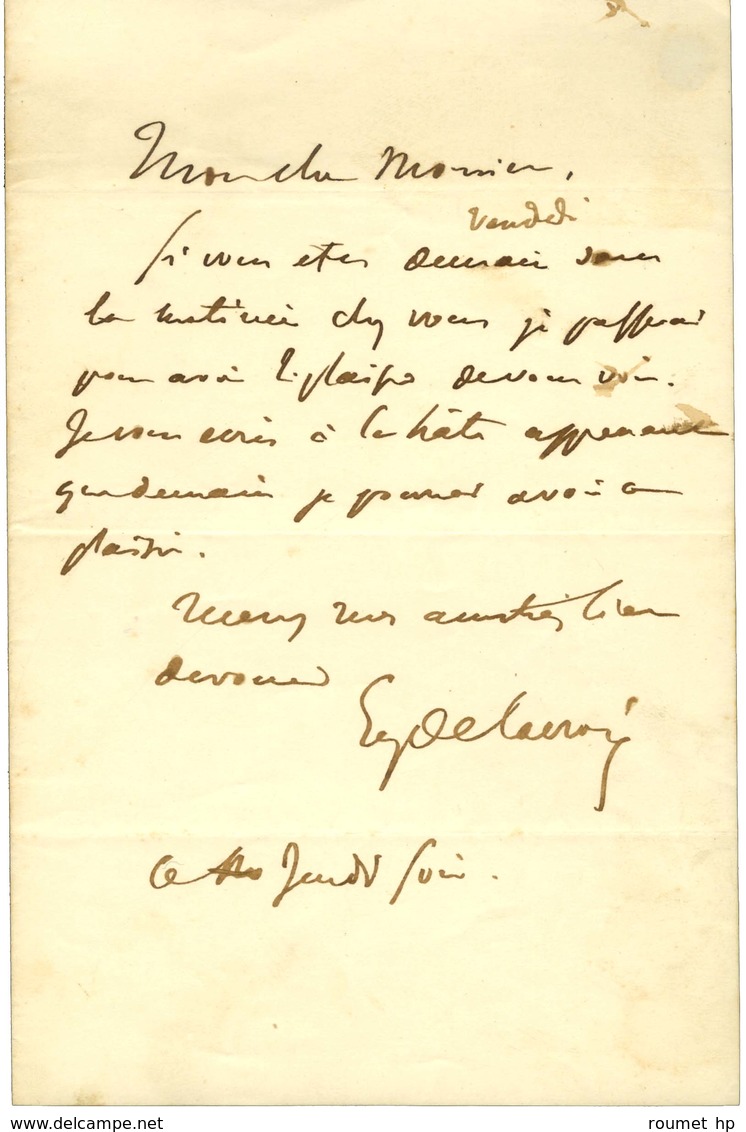 Mon cher Monsieur,
vendredi
Si vous etes demain dans
la matinée chez vous je passerai
pour avoir le plaisir de vous voir.
Je vous écris à la hâte apprenant
que demain je pourrai avoir ce
plaisir.
Mille
votre bien
dévoué
Eug Delacroix
Ce Jeudi soir.
www.delcampe.net
roumet hp